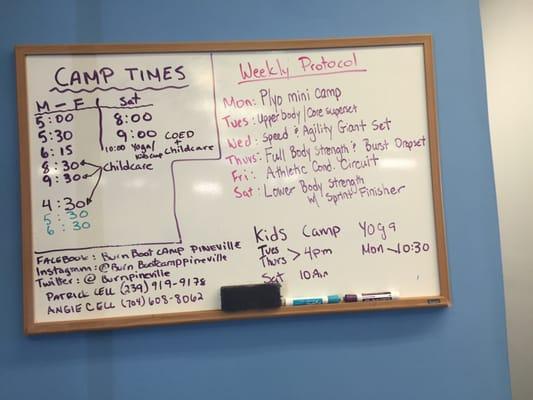 CAMP TIMES
M - F
Sat
5:00
5:30
6:15
8:30
9:30
Childcare
4:30
5:30
6:30
8:00
9:00
COED + Childcare
10:00 Yoga/
FACEBOOK: Burn Boot CAMP PINEVILLE
Instagram: @Burn Bootcamppineville
Twitter: @ Burnpineville
PATRICK CELL (239) 919-9178
ANGIE CELL (704) 608-8062
Weekly Protocol
Mon: Plyo mini camp
Tues: Upper body/Core superset
Wed: Speed & Agility Giant Set
Thurs: Full Body Strength & Burst Dropset
Fri: Athletic Cond. Circuit
Sat: Lower Body Strength
w/ Sprint Finisher
Kids Camp
Tues
Thurs > 4pm
Sat 10Am
Yoga
Mon ~ 10:30